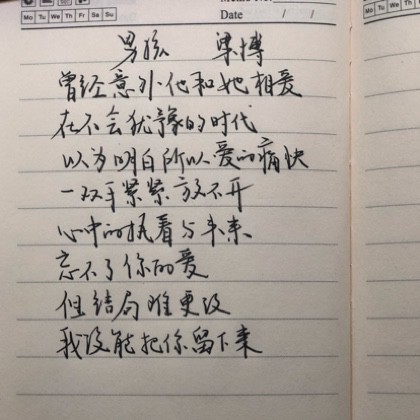 Mo Tu We Th Fr Sa Su
Date / /
男孩 梁博
曾经意外他和她相爱
在不会犹豫的时代
以为明白所以爱的痛快
一双手紧紧放不开
心中的执着与未来
忘不了你的爱
但结局难更改
我没能把你留下来
Mo Tu We